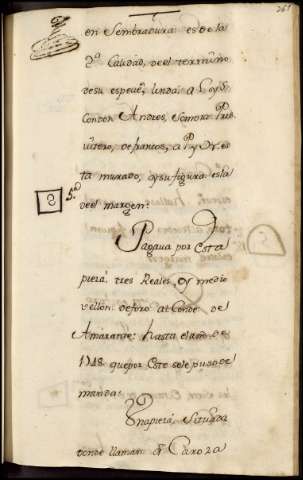 261
en Sembradura: es de la
2ª Calidad, de el termino
de su espeue, linda: a L oy S.
con Don Andres, Samora Pres
uitero, de parcos, a P. y N. es
ta murado, y su figura es la
5ª
8
de el margen:
Pagaua por Esta
pieza: tres Reales y medio
vellon: de foro al Conde de
Amarante: hasta el año de
1748 que por Este se le puso de
manda:
Una pieza, Situada
donde llaman: Caroza